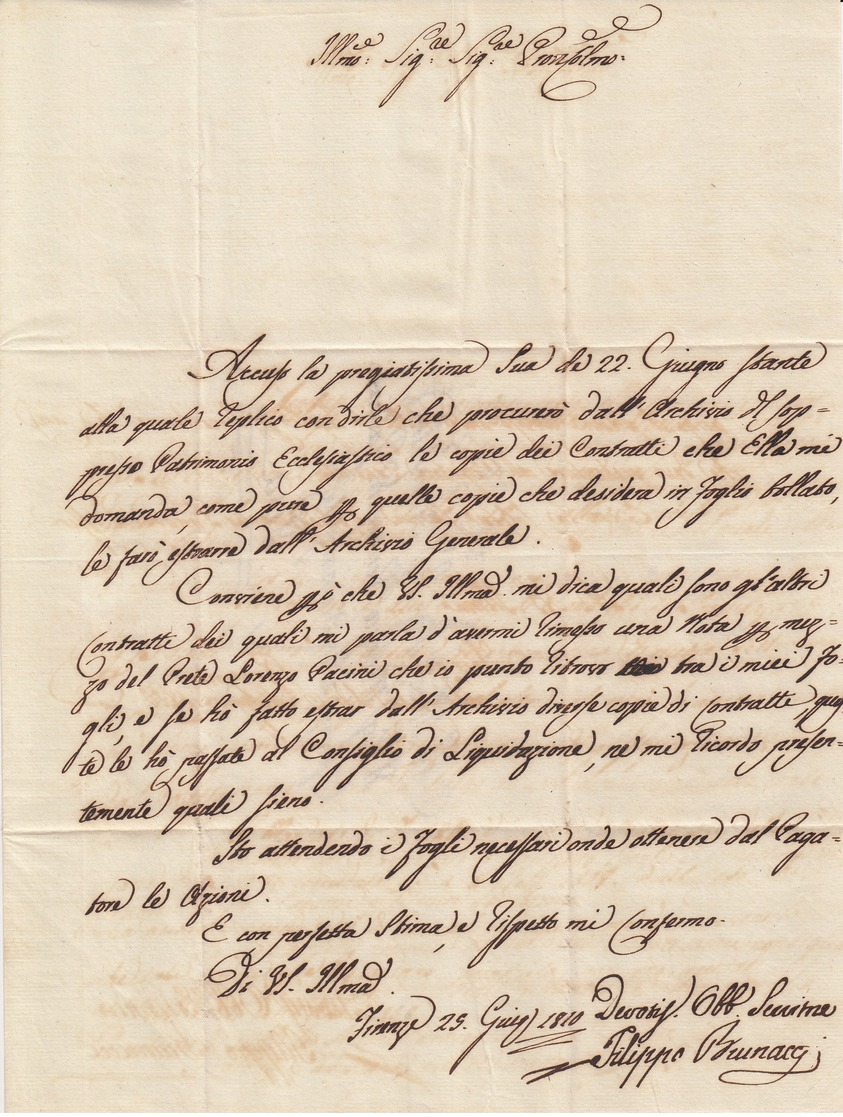 Illmo: Sig:re Sig:re Pron: Colmo:
Accuso la pregiatissima Sua de 22. Giugno stante
alla quale replico con dirle che procurerò dall'Archivio del sop=
presso Patrimonio Ecclesiastico le copie dei Contratti che Ella mi
domanda, come pure p quelle copie che desidera in foglio bollato,
le farò estrarre dall'Archivio Generale.
Conviene pò che VS. Illma. mi dica quali sono gl'altri
Contratti dei quali mi parla d'avermi rimesso una Nota p mez=
zo del Prete Lorenzo Pacini che io punto ritrovo tra i miei fo=
gli, e se hò fatto estrar dall'Archivio diverse copie di contratti, ques
te le hò passate al Consiglio di Liquidazione, ne mi ricordo presen=
temente quali sieno.
Sto attendendo i fogli necessari onde ottenere dal Paga=
tore le Azioni.
E con perfetta Stima, e rispetto mi confermo.
Di VS. Illma.
Firenze 25. Giug. 1810 Devotis. Obb. Servitre
Filippo Brunacci